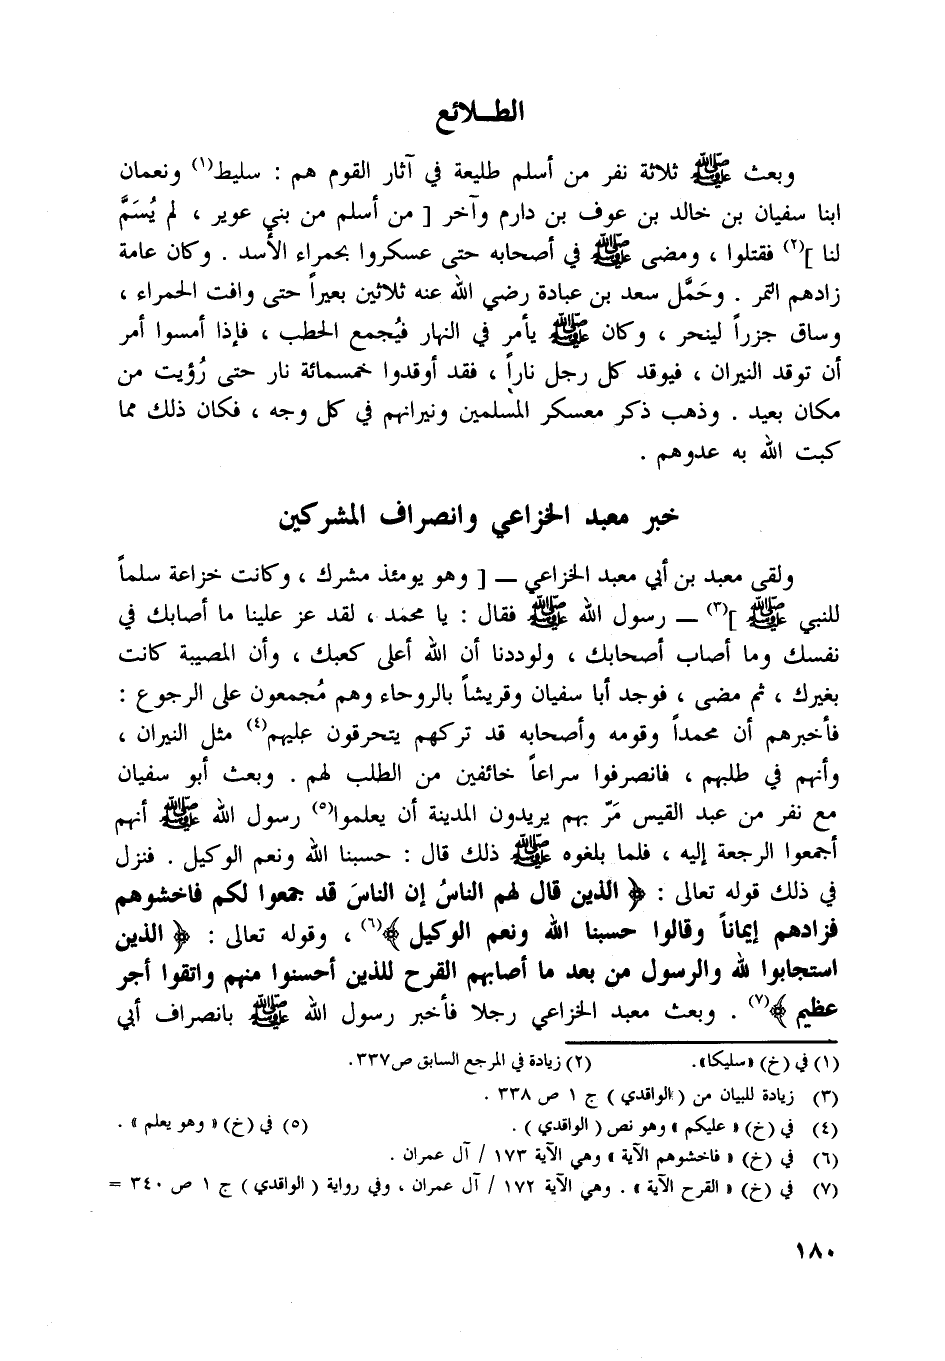 الطـلائع
وبعث ﷺ ثلاثة نفر من أسلم طليعة في آثار القوم هم : سليط(١) ونعمان
ابنا سفيان بن خالد بن عوف بن دارم وآخر [ من أسلم من بني عوير ، لم يُسَمَّ
لنا ](٢) فقتلوا ، ومضى ﷺ في أصحابه حتى عسكروا بحمراء الأسد . وكان عامة
زادهم التمر . وحَمَّل سعد بن عبادة رضي الله عنه ثلاثين بعيراً حتى وافت الحمراء ،
وساق جزراً لينحر ، وكان ﷺ يأمر في النهار فيُجمع الحطب ، فإذا أمسوا أمر
أن توقد النيران ، فيوقد كل رجل ناراً ، فقد أوقدوا خمسمائة نار حتى رُؤيت من
مكان بعيد . وذهب ذكر معسكر المسلمين ونيرانهم في كل وجه ، فكان ذلك مما
كبت الله به عدوهم .
خبر معبد الخزاعي وانصراف المشركين
ولقى معبد بن أبي معبد الخزاعي — [ وهو يومئذ مشرك ، وكانت خزاعة سلماً
للنبي ﷺ ](٣) — رسول الله ﷺ فقال : يا محمد ، لقد عز علينا ما أصابك في
نفسك وما أصاب أصحابك ، ولوددنا أن الله أعلى كعبك ، وأن المصيبة كانت
بغيرك ، ثم مضى ، فوجد أبا سفيان وقريشاً بالروحاء وهم مُجمعون على الرجوع :
فأخبرهم أن محمداً وقومه وأصحابه قد تركهم يتحرقون عليهم(٤) مثل النيران ،
وأنهم في طلبهم ، فانصرفوا سراعاً خائفين من الطلب لهم . وبعث أبو سفيان
مع نفر من عبد القيس مَرّ بهم يريدون المدينة أن يعلموا(٥) رسول الله ﷺ أنهم
أجمعوا الرجعة إليه ، فلما بلغوه ﷺ ذلك قال : حسبنا الله ونعم الوكيل . فنزل
في ذلك قوله تعالى : ﴿ الذين قال لهم الناسُ إن الناسَ قد جمعوا لكم فاخشوهم
فزادهم إيماناً وقالوا حسبنا الله ونعم الوكيل ﴾(٦) ، وقوله تعالى : ﴿ الذين
استجابوا لله والرسول من بعد ما أصابهم القرح للذين أحسنوا منهم واتقوا أجر
عظيم ﴾(٧) . وبعث معبد الخزاعي رجلا فأخبر رسول الله ﷺ بانصراف أبي
(١) في (خ) «سليكا». (٢) زيادة في المرجع السابق ص٣٣٧.
(٣) زيادة للبيان من ( الواقدي ) ج ١ ص ٣٣٨ .
(٤) في (خ) « عليكم » وهو نص ( الواقدي ) . (٥) في (خ) « وهو يعلم » .
(٦) في (خ) « فاخشوهم الآية » وهي الآية ١٧٣ / آل عمران .
(٧) في (خ) « القرح الآية » . وهي الآية ١٧٢ / آل عمران ، وفي رواية ( الواقدي ) ج ١ ص ٣٤٠ =
١٨٠